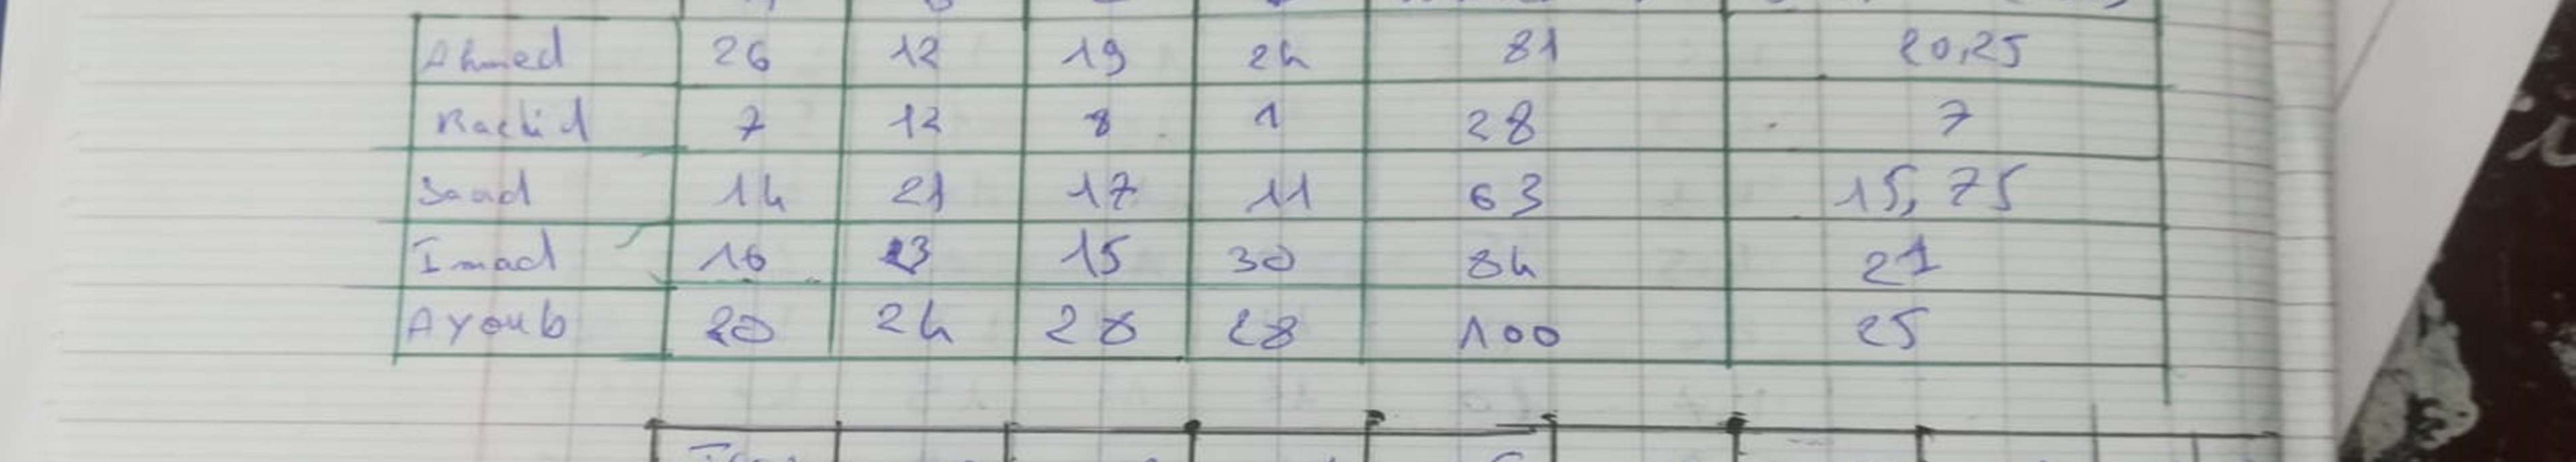 Ahmed 26 12 19 24 81 20,25
Rachid 7 12 8 1 28 7
Saad 14 21 17 11 63 15,75
Imad 16 23 15 30 84 21
Ayoub 20 24 28 28 100 25